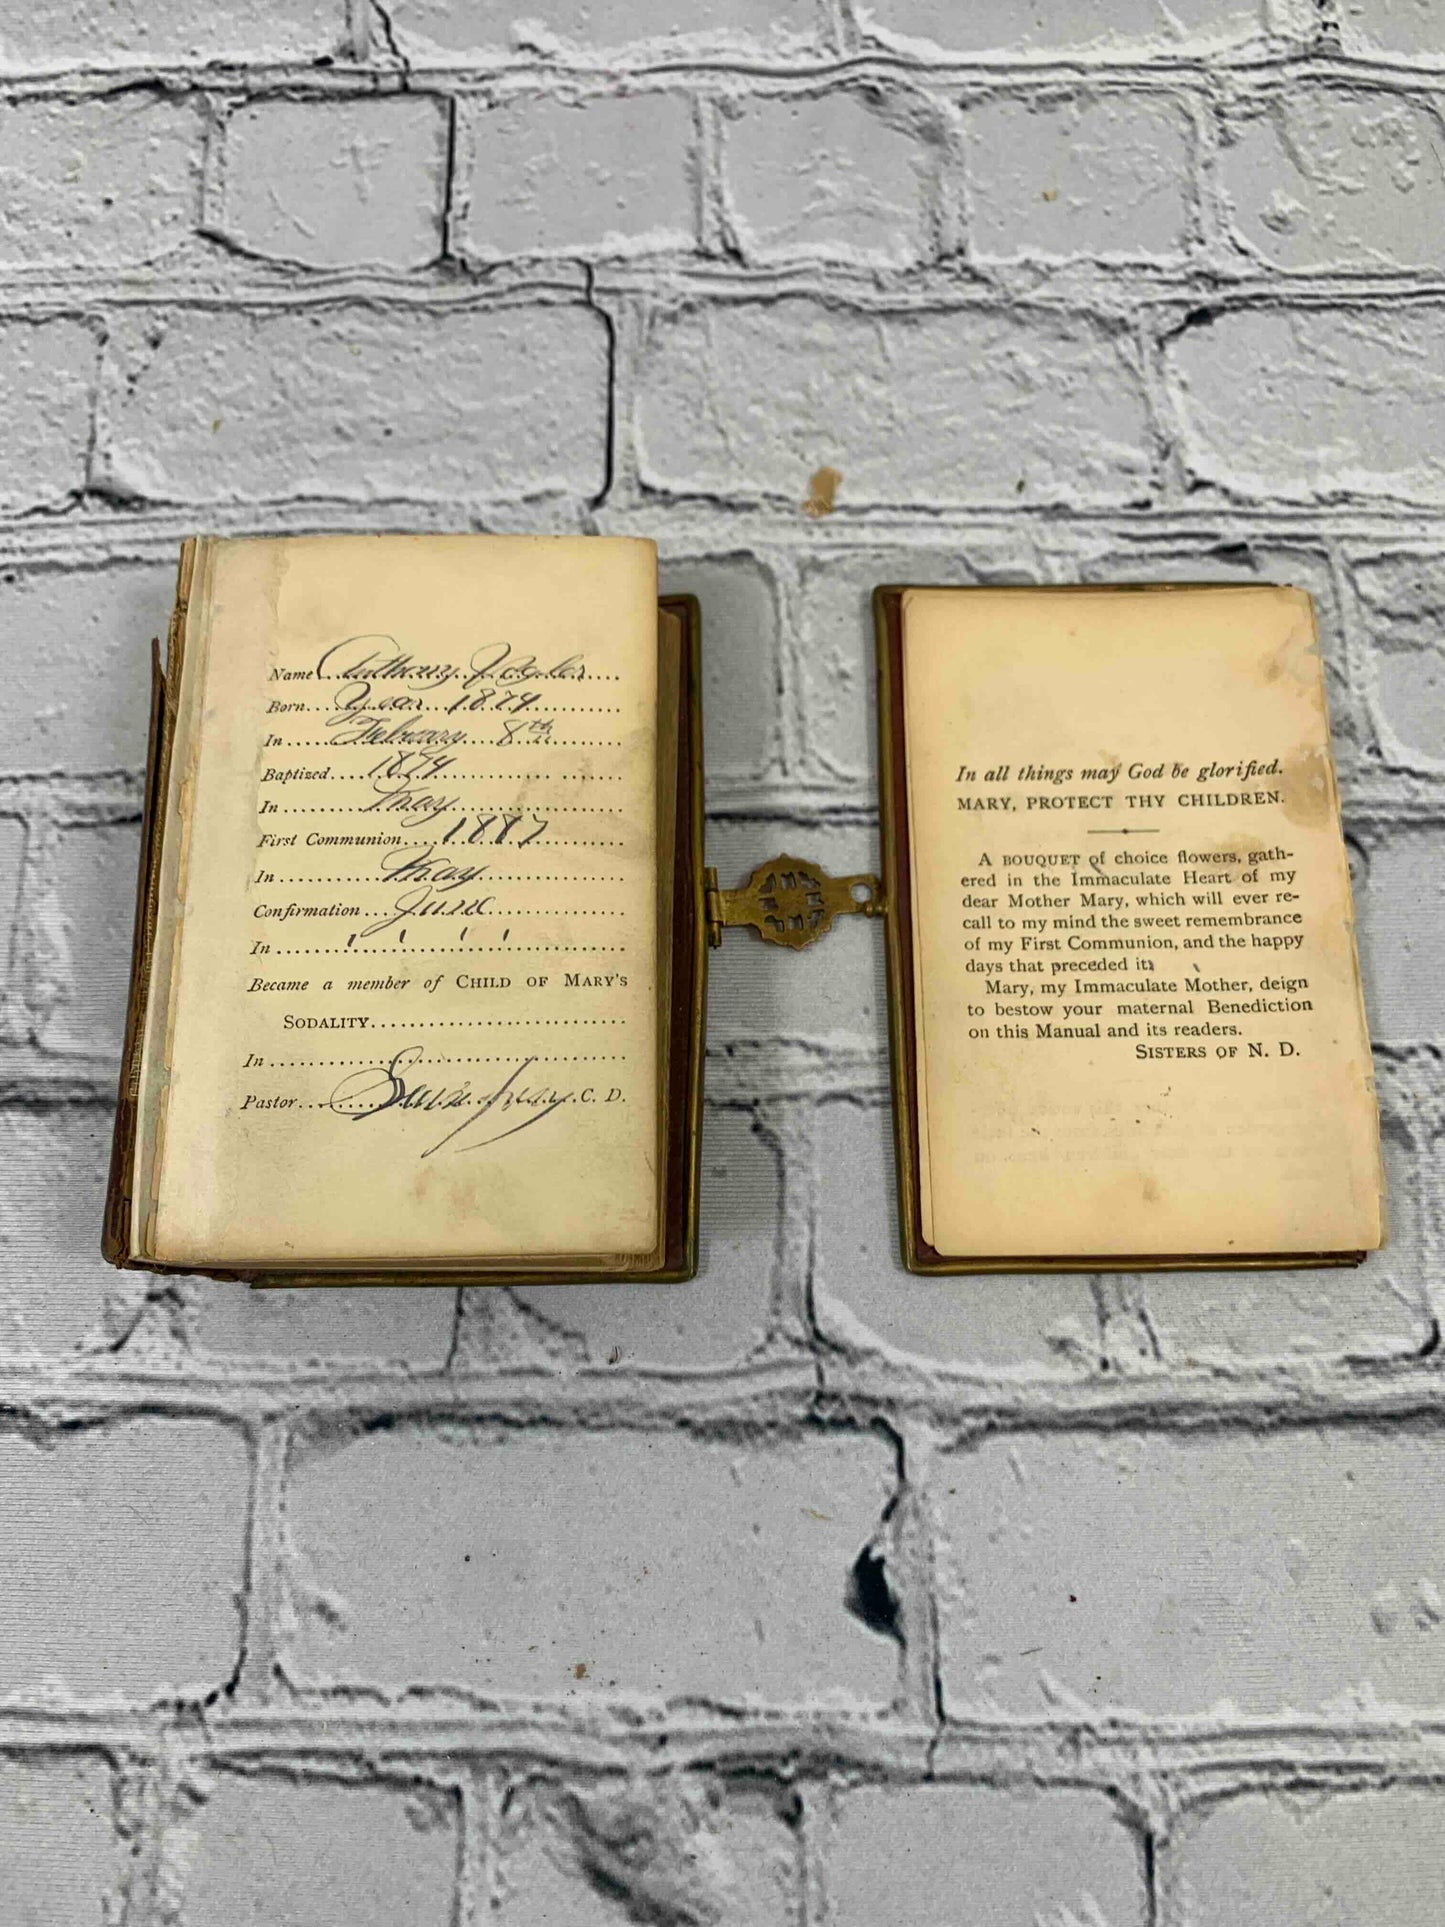 Name Anthony Vogler
Born Year 1874
In February 8th
Baptized 1874
In May
First Communion 1887
In May
Confirmation June
In
Became a member of CHILD OF MARY'S
SODALITY
In
Pastor C. D.
In all things may God be glorified.
MARY, PROTECT THY CHILDREN.
A BOUQUET of choice flowers, gath-
ered in the Immaculate Heart of my
dear Mother Mary, which will ever re-
call to my mind the sweet remembrance
of my First Communion, and the happy
days that preceded it.
Mary, my Immaculate Mother, deign
to bestow your maternal Benediction
on this Manual and its readers.
SISTERS OF N. D.